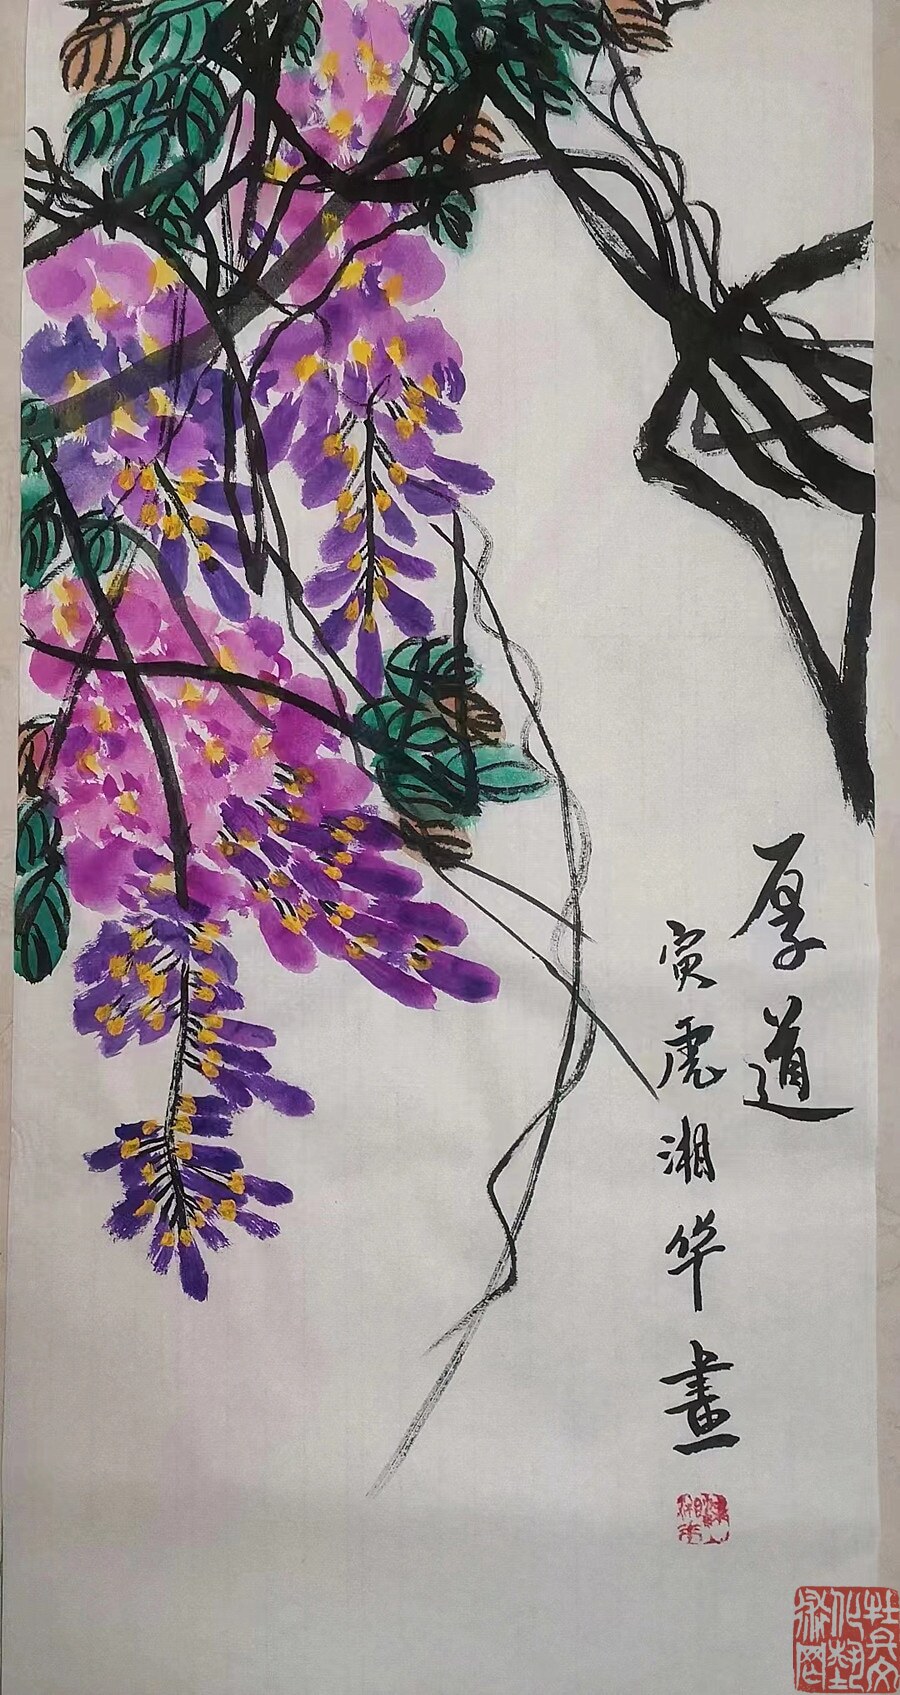 厚道
寅虎湘华畫